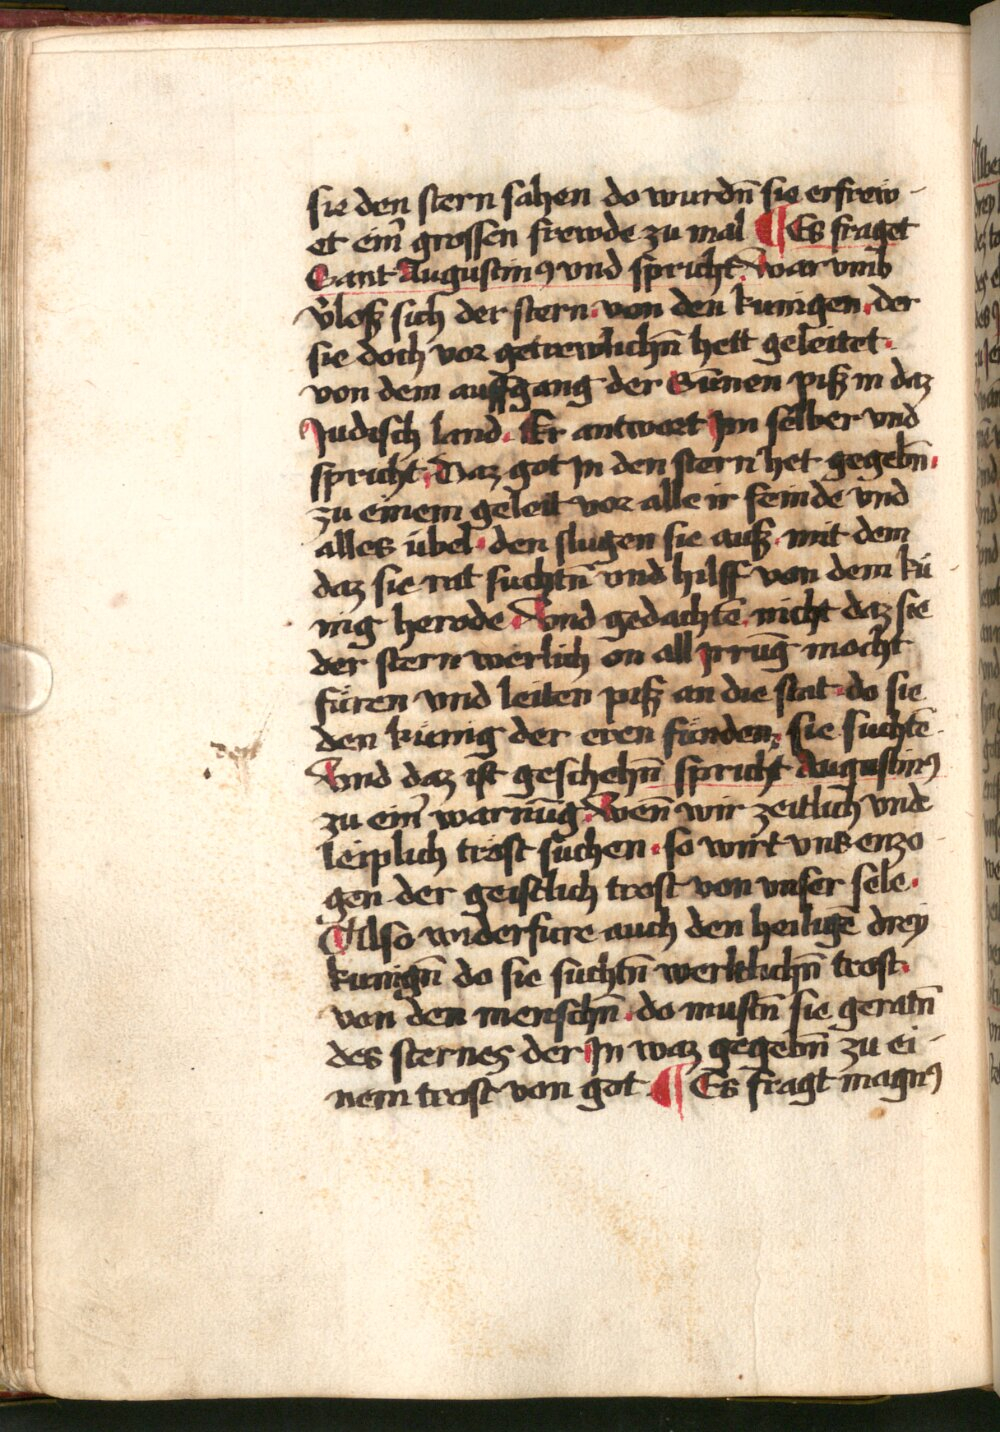 sie den stern sahen do wurdn̄ sie erfrew-
et eim̄ grossen frewde zu mal ¶ Es fraget
Sant Augustinꝰ vnd spricht. War vmb
v̄loß sich der stern. von den kunigen. der
sie doch vor getrewlichn̄ hett geleitet.
von dem auffgang der Sūnen piß in daz
Judisch land. Er antwort Jm selber vnd
spricht. Daz got Jn den stern het gegebn̄.
zu einem geleit vor alle ir feinde vnd
alles übel. den slugen sie auß. mit dem
daz sie rat suchtn̄ vnd hilff von dem kü-
nig herode. Vnd gedachtē nicht daz sie
der stern werlich on all Jrrūg mocht
füren vnd leiten piß an die stat. do sie
den küenig der eren fünden. sie suchtē.
Vnd daz ist geschehn̄ spricht Augustinꝰ
zu eim̄ warnūg. Wen̄ wir zeitlich vnd
leiplich trost suchen. so wirt vns enzo-
gen der geistlich trost von vnser sele.
Also widerfure auch den heiligē drey
kunign̄ do sie suchtn̄ werltlichn̄ trost.
von den menschn̄. do mustn̄ sie geratn̄
des sternes der Jn waz gegebn̄ zu ei-
nem trost von got. ¶ Es fragt magnꝰ